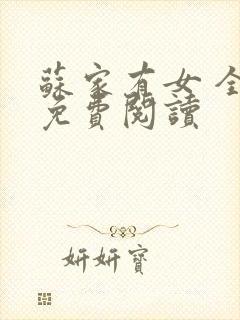 蘇家有女 全
免費閱讀
妍妍寶